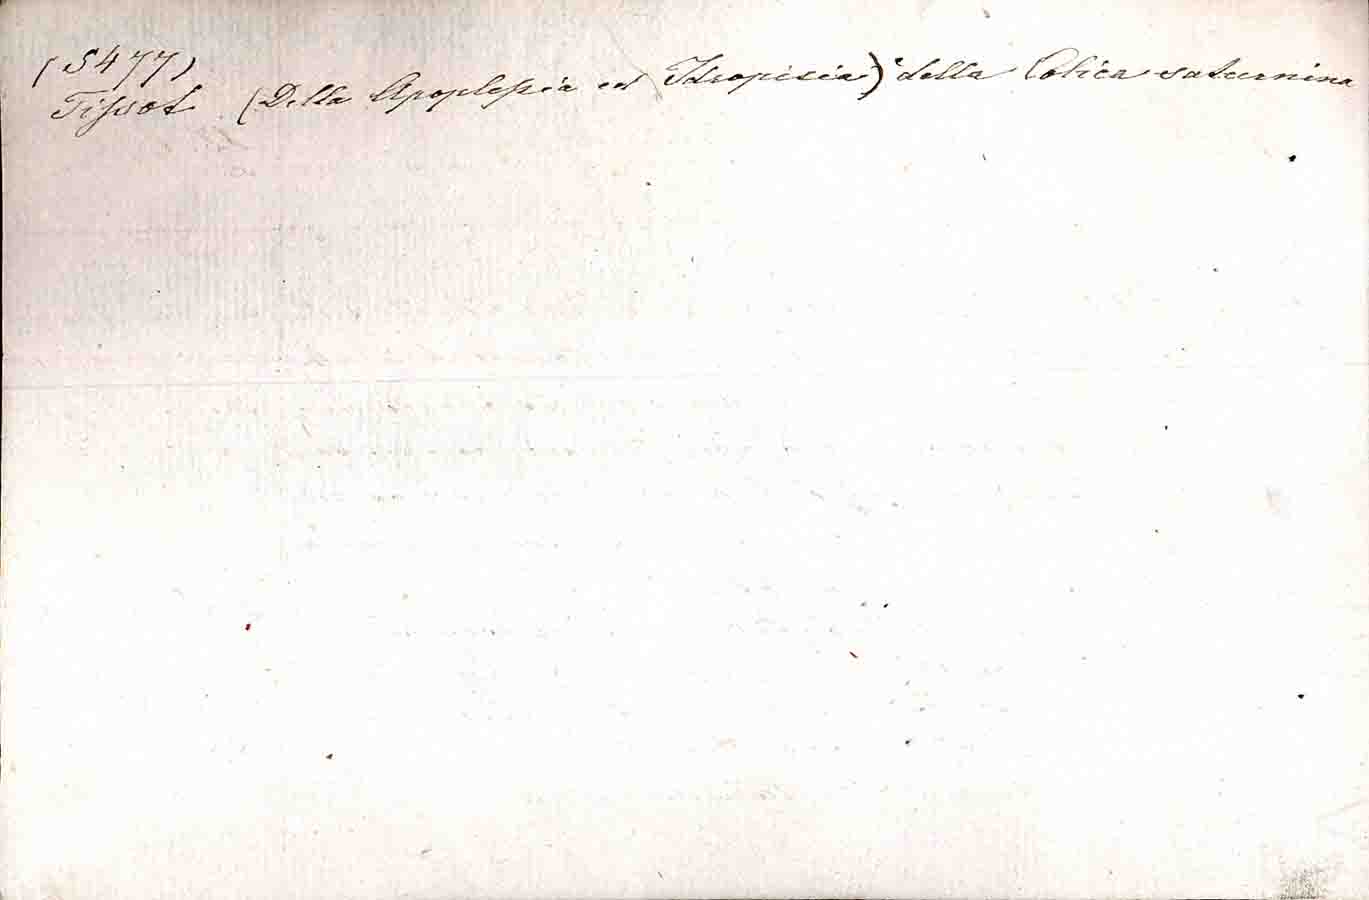 (5477)
Tissot (Della Apoplessia ed Idropisia) della Colica saturnina